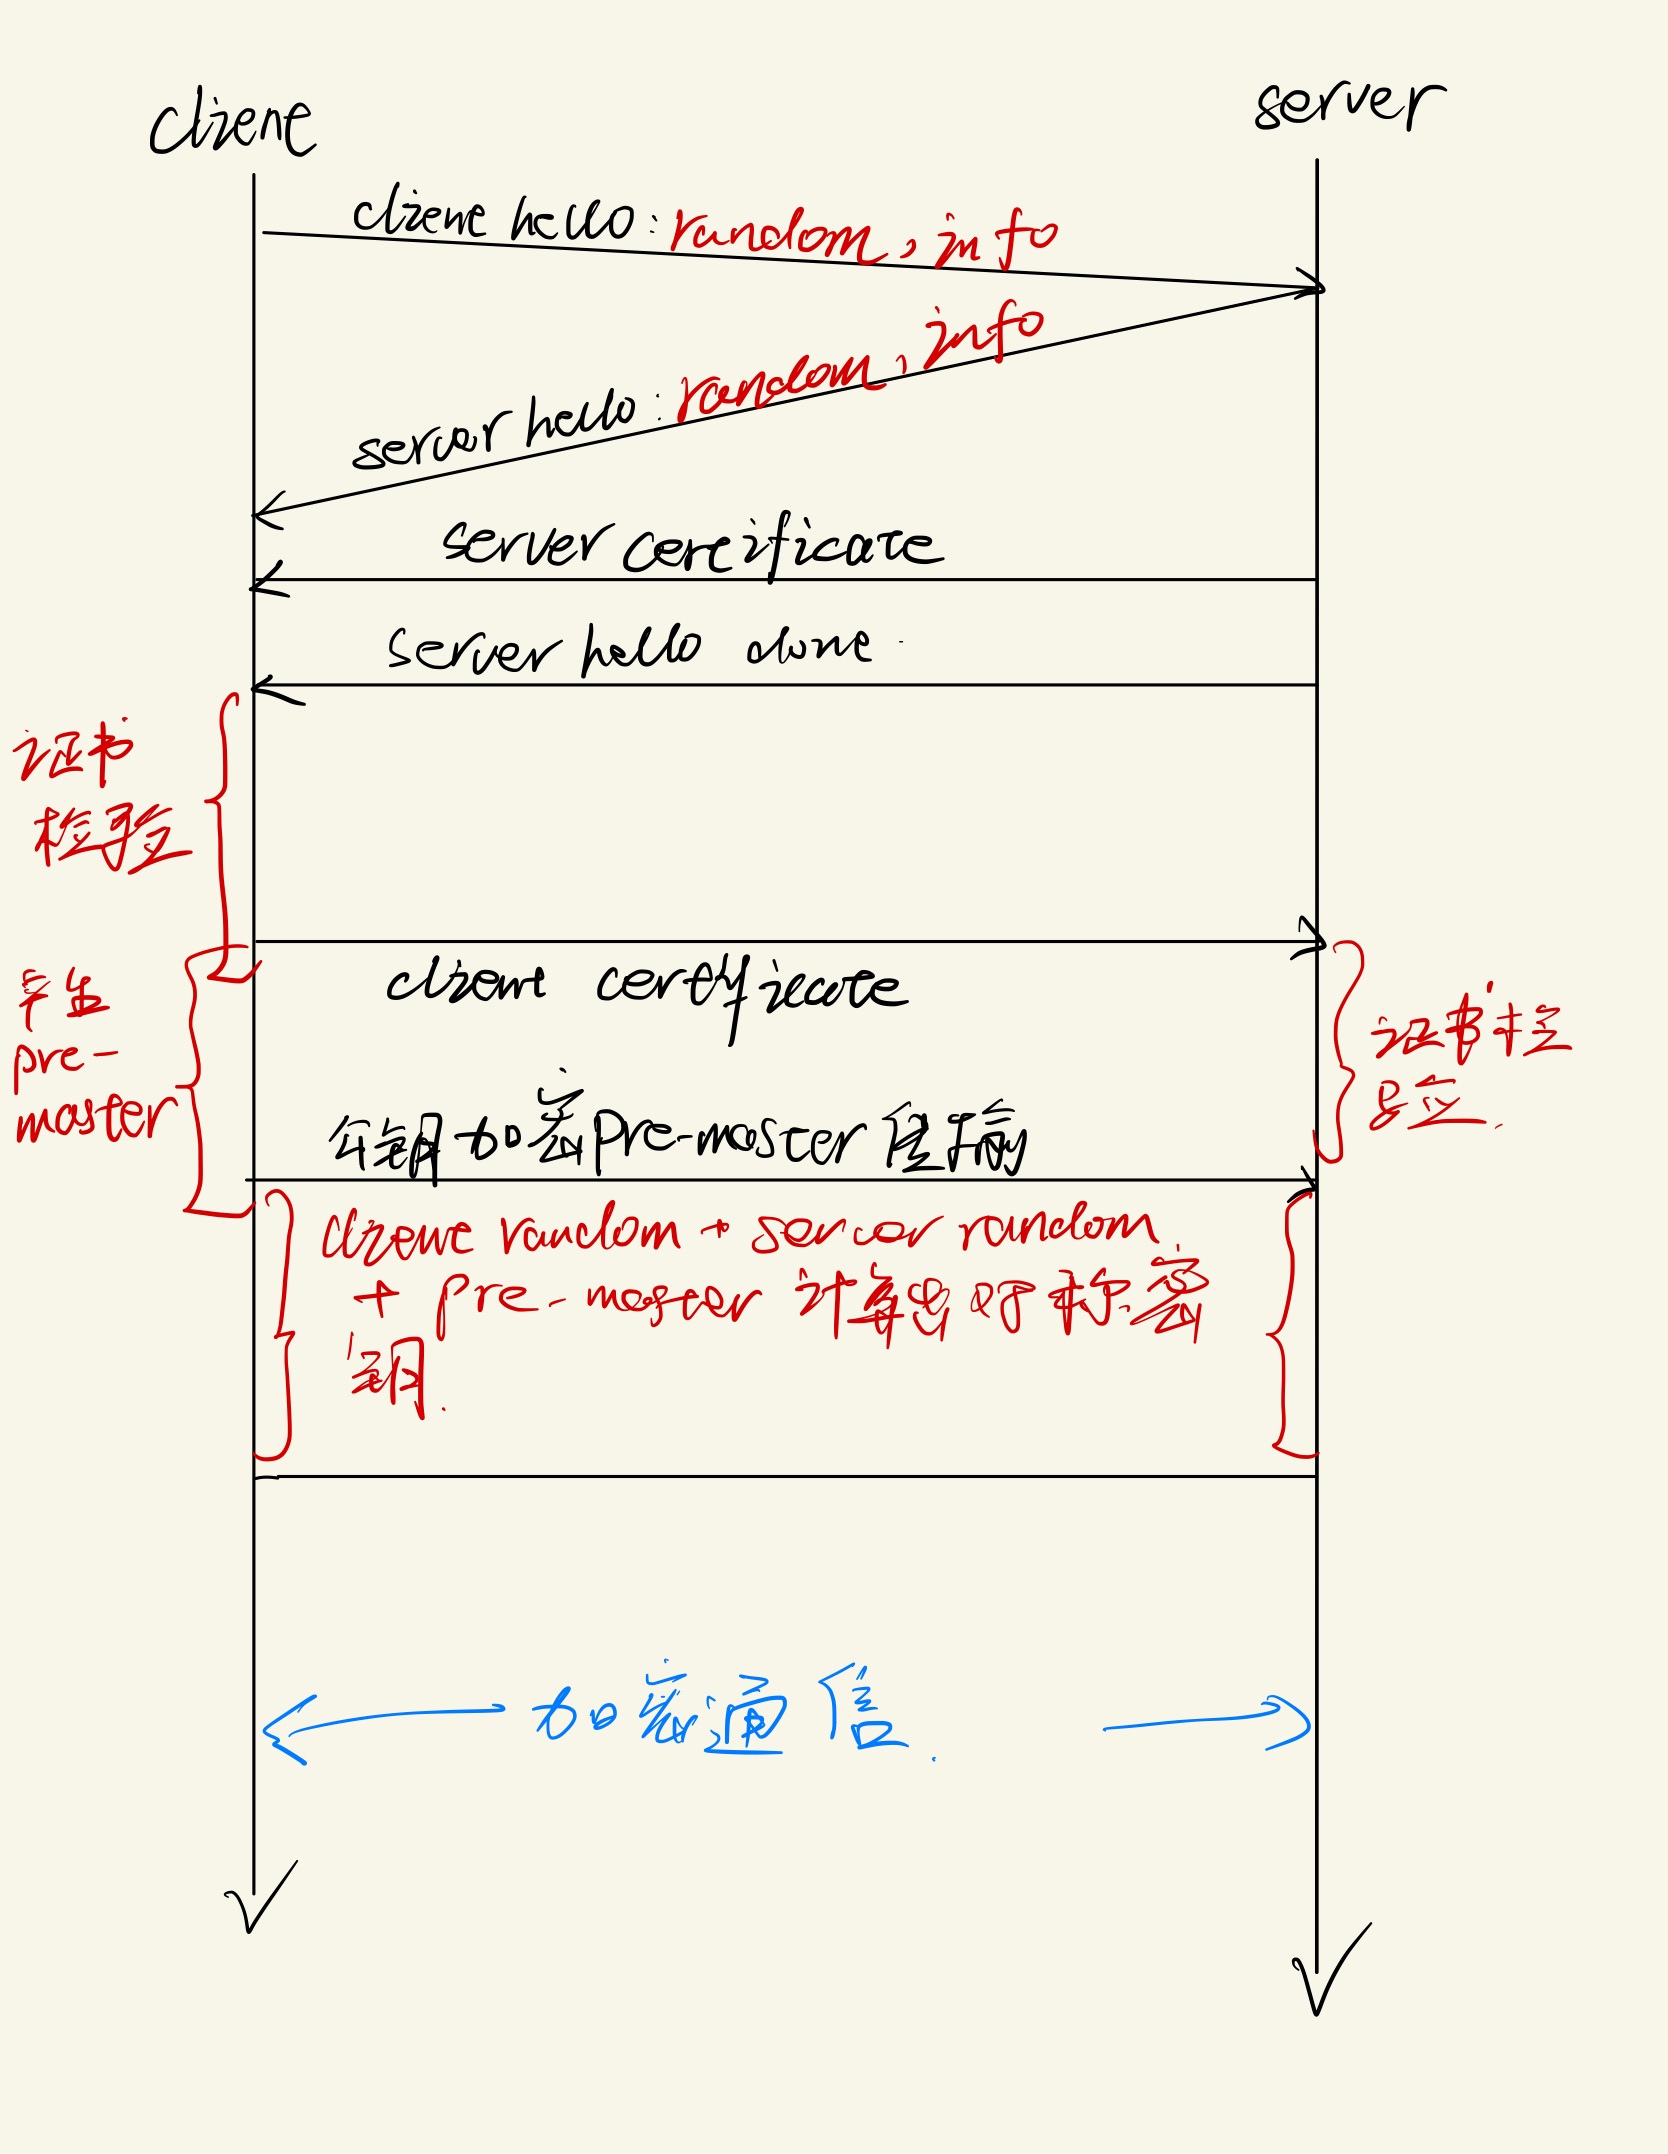 client
server
client hello: random, info
server hello: random, info
server certificate
server hello done
证书
检验
client certificate
产生
pre-
master
证书检
验.
公钥加密pre-master传输
client random + server random
+ pre-master 计算出对称密
钥.
加密通信.